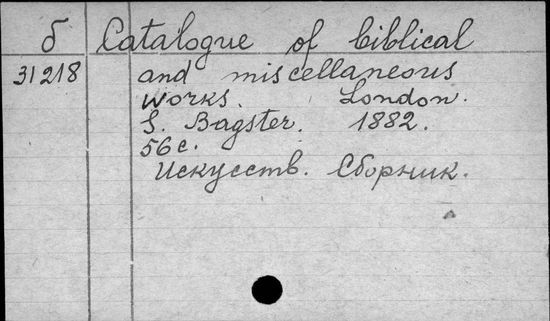 б Catalogue of biblical
31218 and miscellaneous
works. London.
S. Bagster. 1882.
56 с.
Искусств. Сборник.